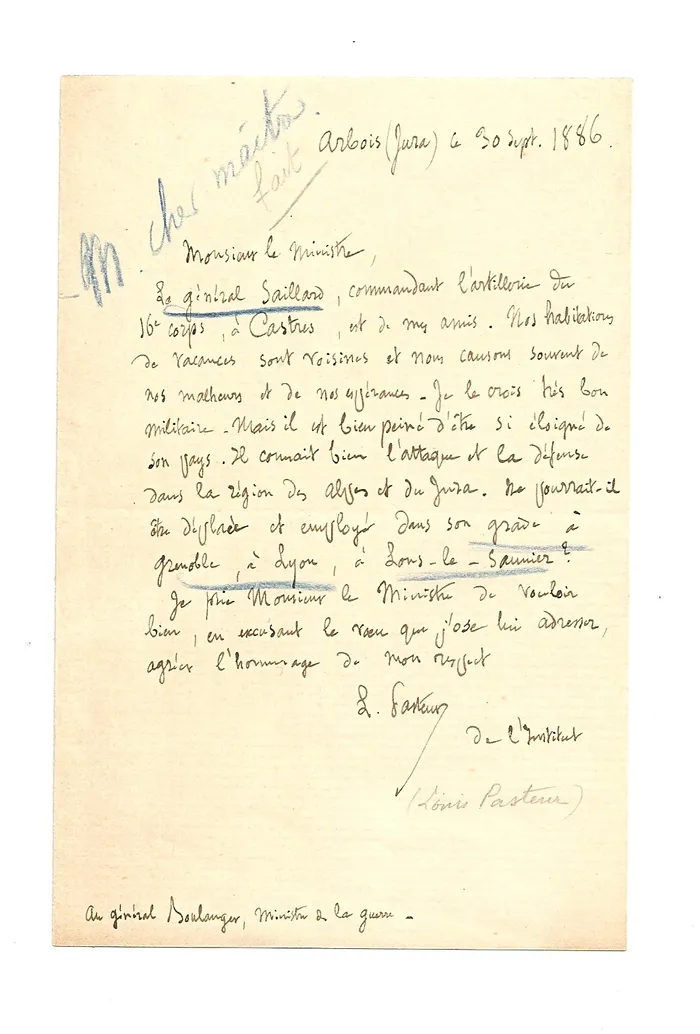 Arbois (Jura) le 30 Sept. 1886.
cher maître
fait
Monsieur le Ministre,
Le général Saillard, commandant l'artillerie du
16e corps, à Castres, est de mes amis. Nos habitations
de vacances sont voisines et nous causons souvent de
nos malheurs et de nos espérances - Je le crois très bon
militaire - Mais il est bien peiné d'être si éloigné de
son pays. Il connait bien l'attaque et la défense
dans la région des Alpes et du Jura. Ne pourrait-il
être déplacé et employé dans son grade à
Grenoble, à Lyon, à Lons-le-Saunier ?
Je prie Monsieur le Ministre de vouloir
bien, en excusant le vœu que j'ose lui adresser,
agréer l'hommage de mon respect
L. Pasteur
de l'Institut
(Louis Pasteur)
Au général Boulanger, Ministre de la guerre -